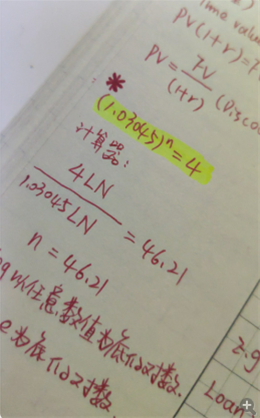 Time value
PV(1+r)=F
PV = FV / (1+r) (Disco
*
(1.03045)ⁿ=4
计算器:
4LN / 1.03045LN = 46.21
n = 46.21
og 以任意数值为底的对数.
e为底的对数.
2.9
Loan